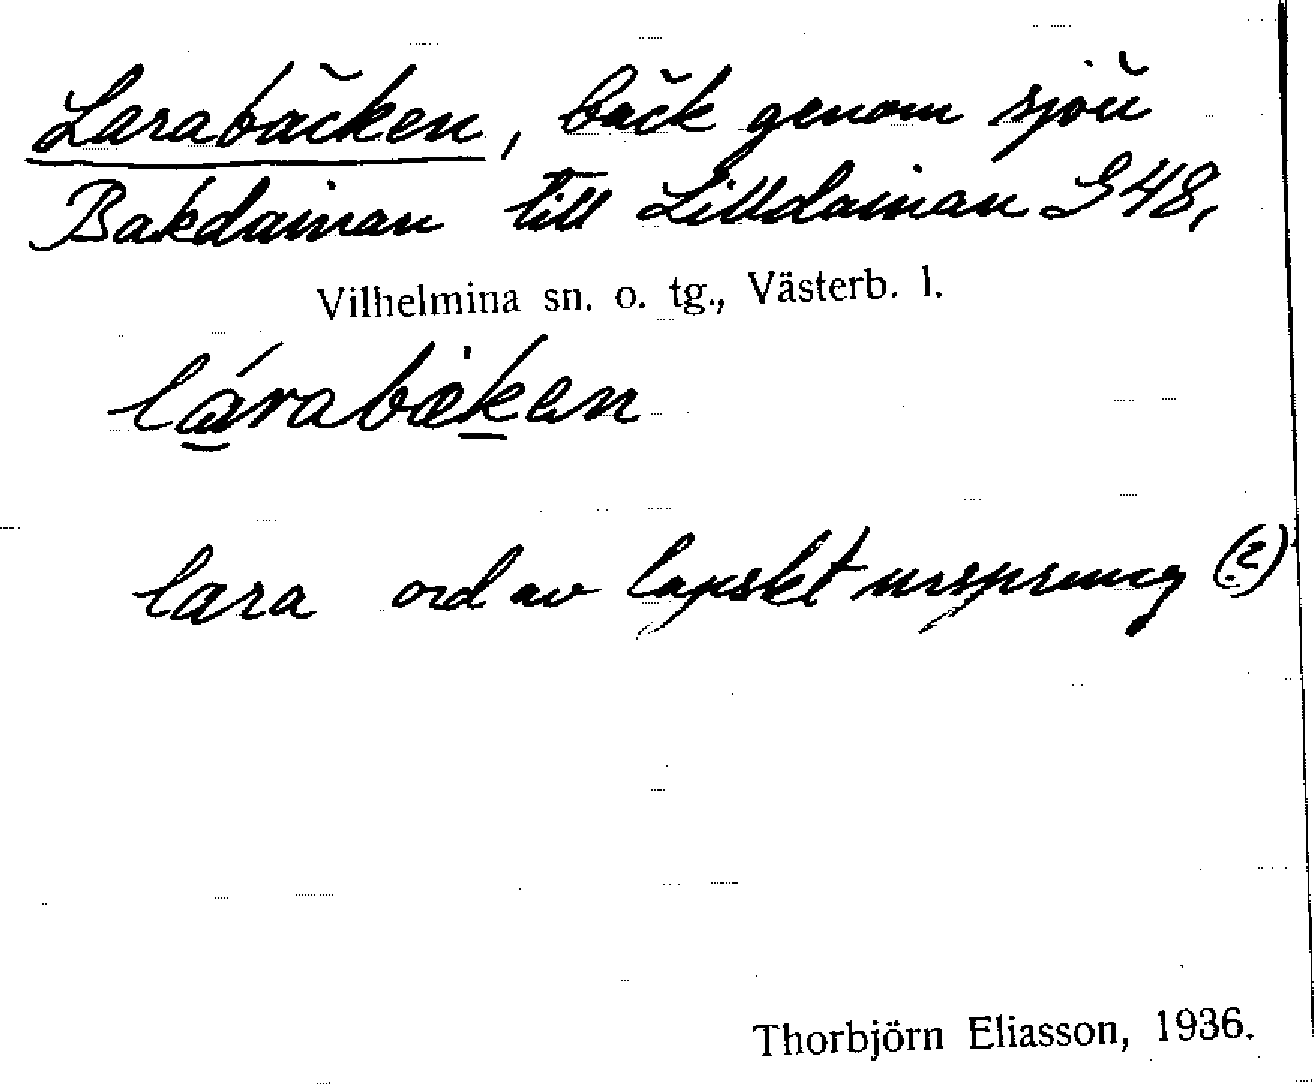 Larabäcken, bäck genom sjön
Bakdainan till Lilldainan G48,
Vilhelmina sn. o. tg., Västerb. l.
lárabæken
lara ord av lapskt ursprung (?)
Thorbjörn Eliasson, 1936.